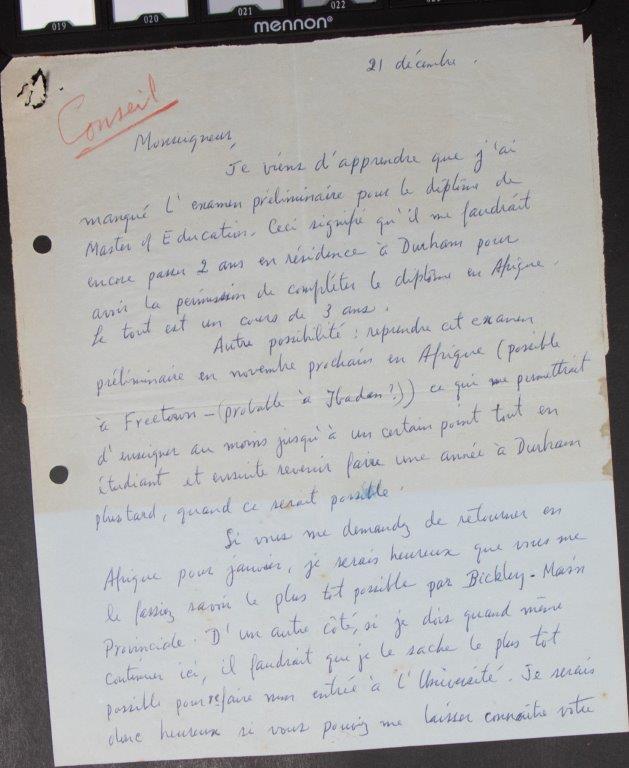 019 020 021 022
mennon®
21 décembre.
Conseil
Monseigneur,
Je viens d'apprendre que j'ai
manqué l'examen préliminaire pour le diplôme de
Master of Education. Ceci signifie qu'il me faudrait
encore passer 2 ans en résidence à Durham pour
avoir la permission de compléter le diplôme en Afrique.
Le tout est un cours de 3 ans.
Autre possibilité : reprendre cet examen
préliminaire en novembre prochain en Afrique (possible
à Freetown - (probable à Ibadan?)) ce qui me permettrait
d'enseigner au moins jusqu'à un certain point tout en
étudiant et ensuite revenir faire une année à Durham
plus tard, quand ce serait possible.
Si vous me demandez de retourner en
Afrique pour janvier, je serais heureux que vous me
le fassiez savoir le plus tôt possible par Bickley - Maison
Provinciale. D'un autre côté, si je dois quand même
continuer ici, il faudrait que je le sache le plus tot
possible pour refaire mon entrée à l'Université. Je serais
donc heureux si vous pouviez me laisser connaître votre